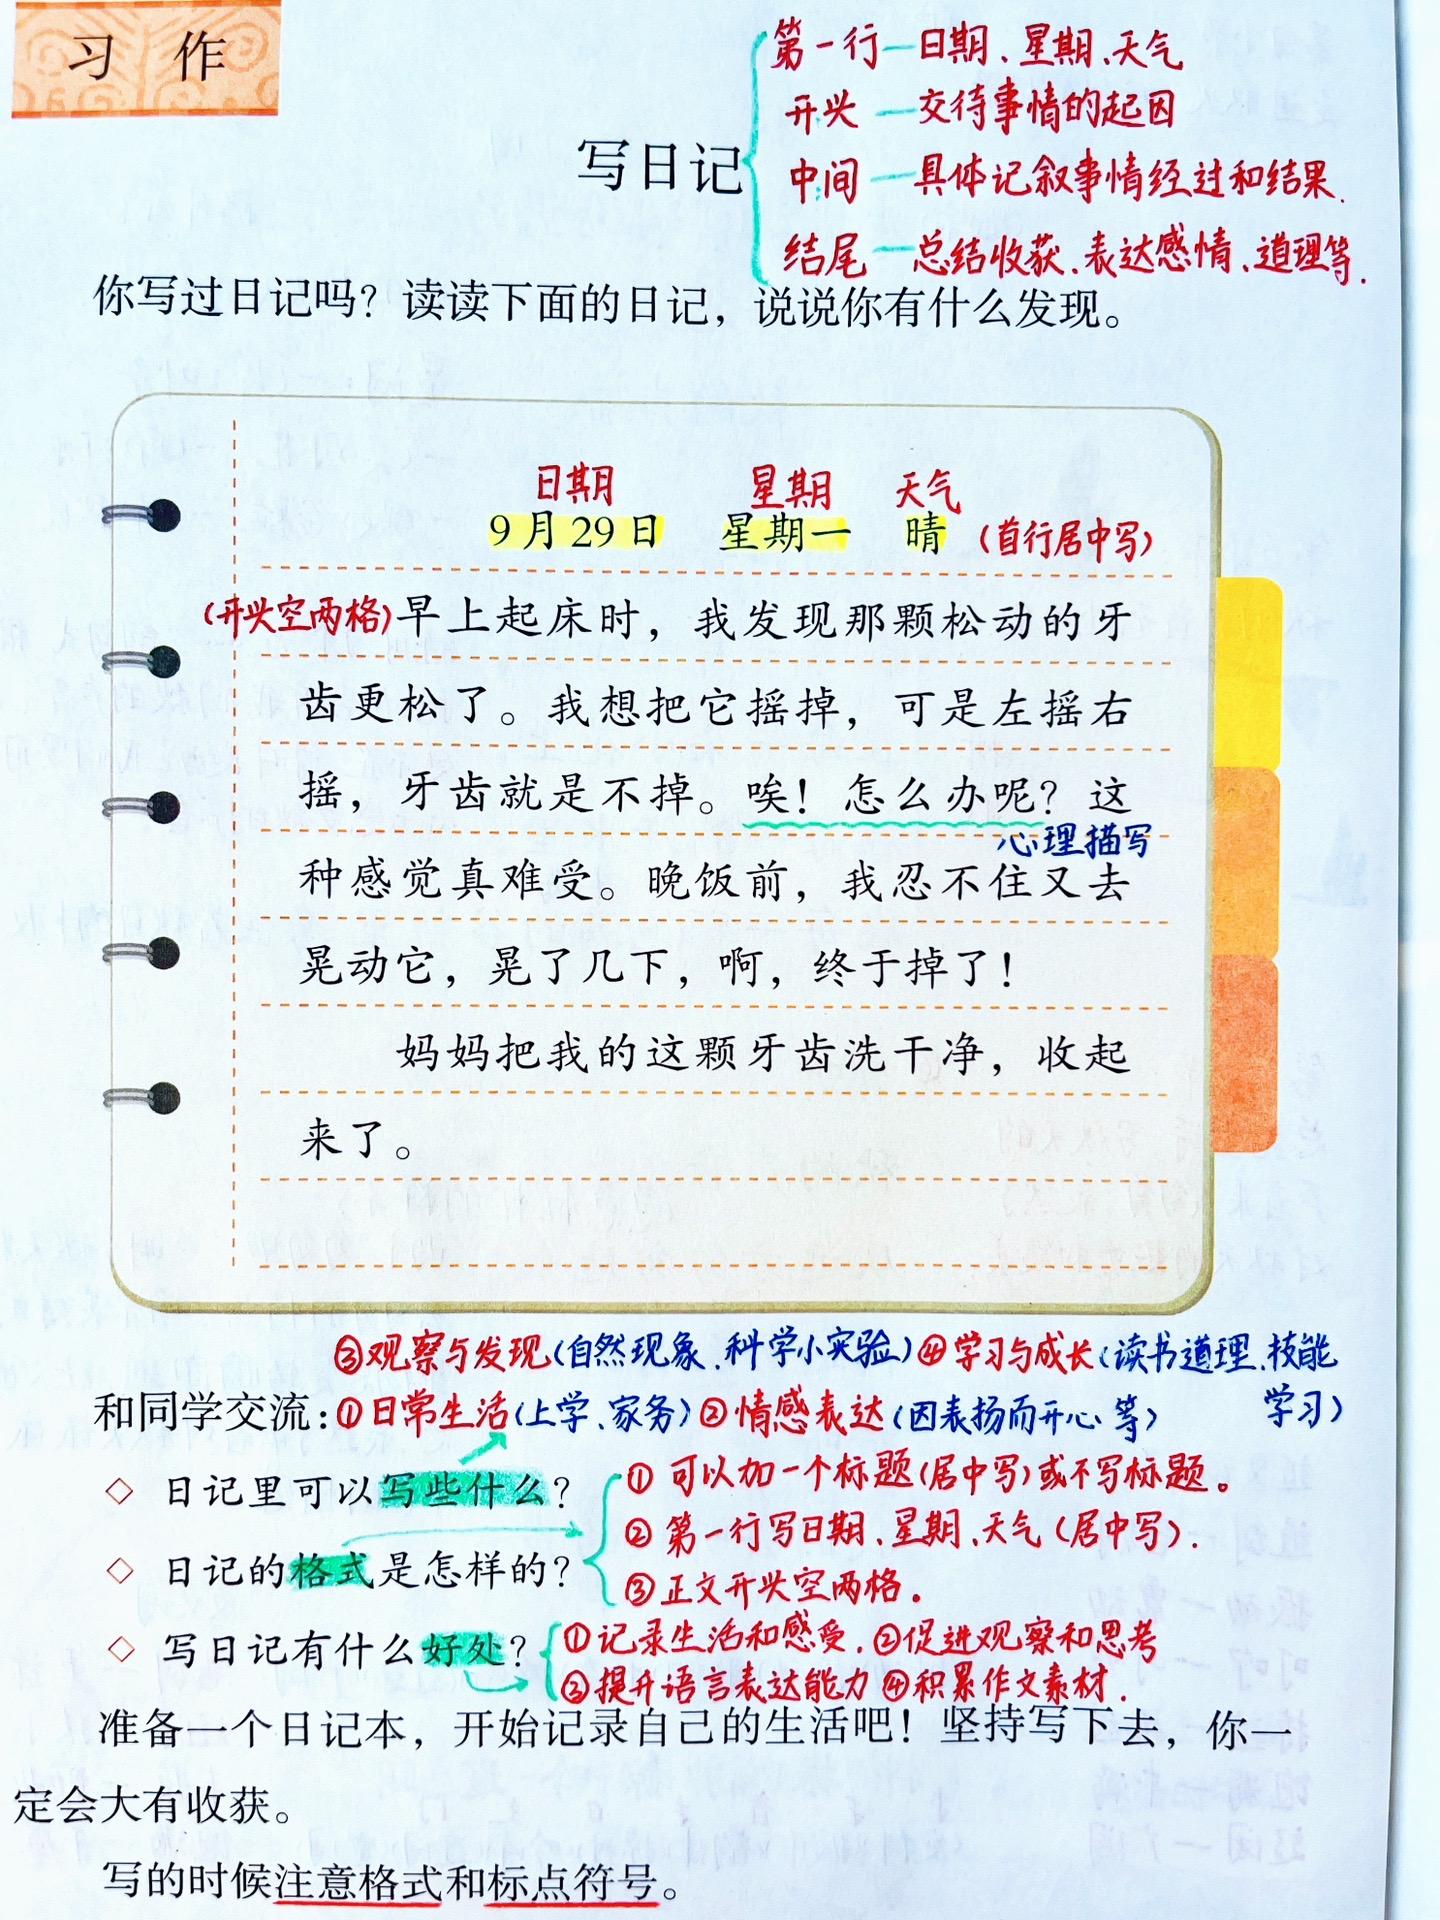 习 作
第一行—日期、星期、天气
开头—交待事情的起因
写日记
中间—具体记叙事情经过和结果.
结尾—总结收获、表达感情、道理等.
你写过日记吗？读读下面的日记，说说你有什么发现。
日期 星期 天气
9月29日 星期一 晴 (首行居中写)
(开头空两格)早上起床时，我发现那颗松动的牙
齿更松了。我想把它摇掉，可是左摇右
摇，牙齿就是不掉。唉！怎么办呢？这
心理描写
种感觉真难受。晚饭前，我忍不住又去
晃动它，晃了几下，啊，终于掉了！
妈妈把我的这颗牙齿洗干净，收起
来了。
③观察与发现(自然现象、科学小实验)④学习与成长(读书道理、技能
学习)
和同学交流：①日常生活(上学、家务)②情感表达(因表扬而开心等)
◇ 日记里可以写些什么？
①可以加一个标题(居中写)或不写标题。
②第一行写日期、星期、天气(居中写).
◇ 日记的格式是怎样的？
③正文开头空两格.
◇ 写日记有什么好处？
①记录生活和感受.②促进观察和思考
③提升语言表达能力④积累作文素材.
准备一个日记本，开始记录自己的生活吧！坚持写下去，你一
定会大有收获。
写的时候注意格式和标点符号。